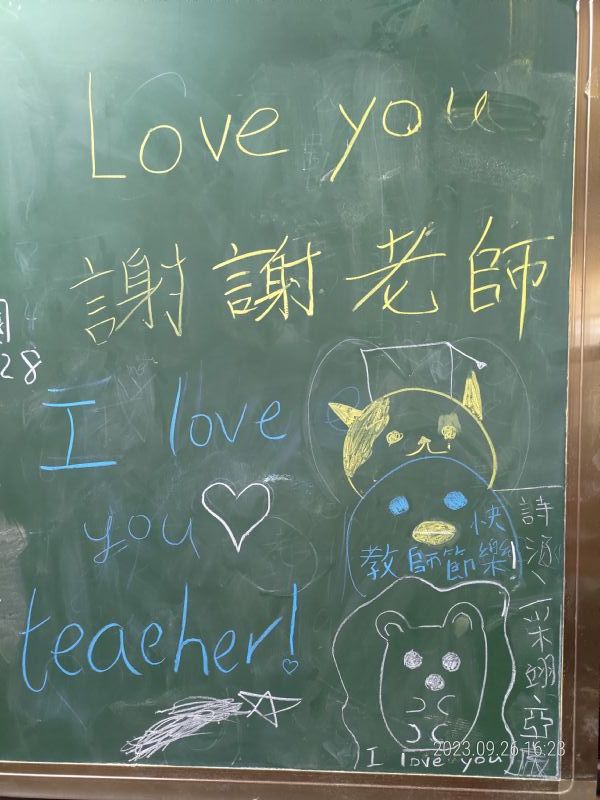 Love you
謝謝老師
28
I love
you
teacher!
快
教師節樂!
I love you
詩涵、采翊、亞
2023.09.26 16:23